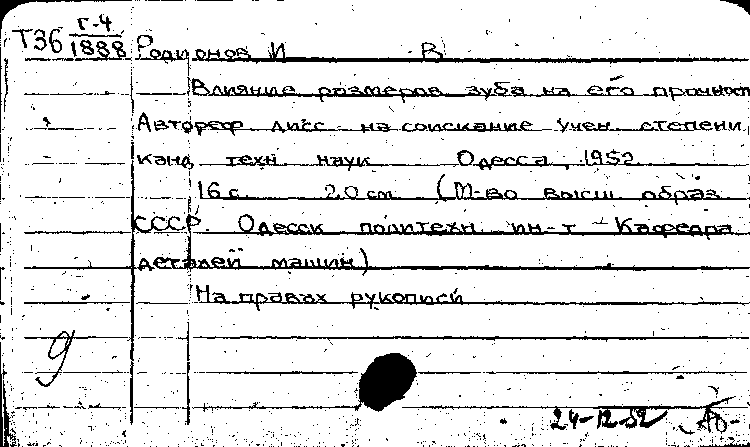 Т36 Г-4
1888
Родионов И В
Влияние размеров зуба на его прочность
Автореф дисс на соискание учен степени
канд техн наук Одесса, 1952
16 с. 20 см (М-во высш образ
СССР. Одесск политехн ин-т Кафедра
деталей машин)
На правах рукописи
9
24-12-52